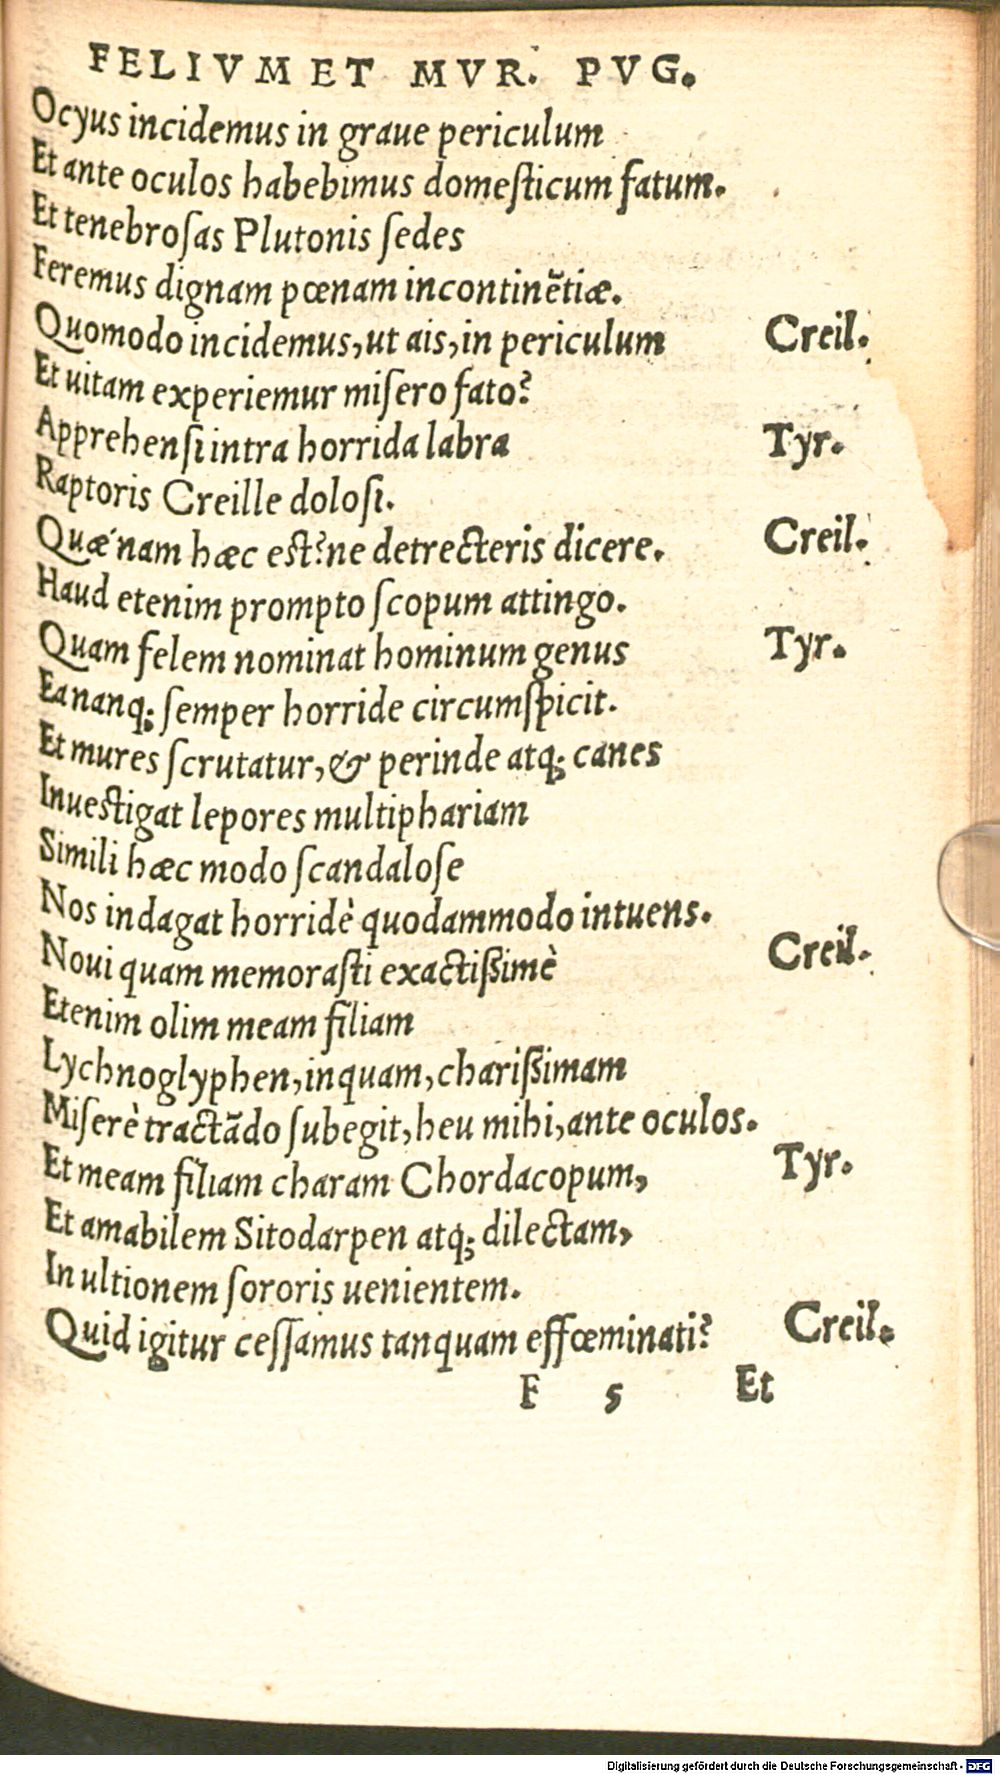 FELIVM ET MVR. PVG.
Ocyus incidemus in graue periculum
Et ante oculos habebimus domeſticum fatum.
Et tenebroſas Plutonis ſedes
Feremus dignam pœnam incontinẽtiæ.
Quomodo incidemus, ut ais, in periculum Creil.
Et uitam experiemur miſero fato?
Apprehenſi intra horrida labra Tyr.
Raptoris Creille doloſi.
Quǽnam hæc eſt? ne detrecteris dicere. Creil.
Haud etenim prompto ſcopum attingo.
Quam felem nominat hominum genus Tyr.
Ea nanq; ſemper horride circumſpicit.
Et mures ſcrutatur, & perinde atq; canes
Inueſtigat lepores multiphariam
Simili hæc modo ſcandaloſe
Nos indagat horridè quodammodo intuens.
Noui quam memoraſti exactißimè Creil.
Etenim olim meam filiam
Lychnoglyphen, inquam, charißimam
Miſerè tractãdo ſubegit, heu mihi, ante oculos.
Et meam filiam charam Chordacopum, Tyr.
Et amabilem Sitodarpen atq; dilectam,
In ultionem ſororis uenientem.
Quid igitur ceſſamus tanquam effœminati? Creil.
F 5 Et
Digitalisierung gefördert durch die Deutsche Forschungsgemeinschaft - DFG